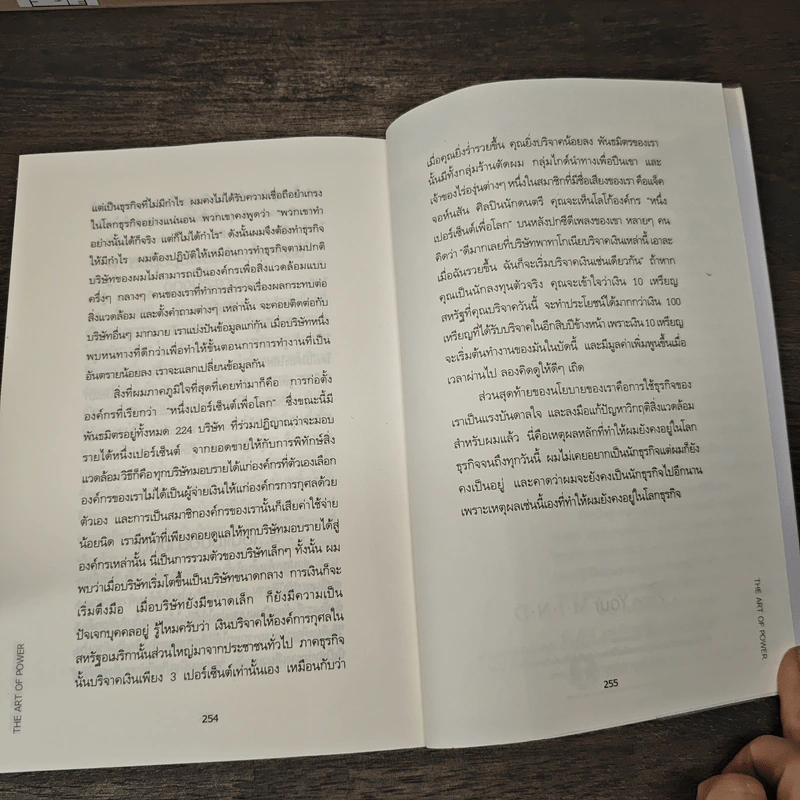 แต่เป็นธุรกิจที่ไม่มีกำไร ผมคงไม่ได้รับความเชื่อถือยำเกรง
ในโลกธุรกิจอย่างแน่นอน พวกเขาคงพูดว่า "พวกเขาทำ
อย่างนั้นได้ก็จริง แต่ก็ไม่ได้กำไร" ดังนั้นผมจึงต้องทำธุรกิจ
ให้มีกำไร ผมต้องปฏิบัติให้เหมือนการทำธุรกิจตามปกติ
บริษัทของผมไม่สามารถเป็นองค์กรเพื่อสิ่งแวดล้อมแบบ
ครึ่งๆ กลางๆ คนของเราที่ทำการสำรวจเรื่องผลกระทบต่อ
สิ่งแวดล้อม และตั้งคำถามต่างๆ เหล่านั้น จะคอยติดต่อกับ
บริษัทอื่นๆ มากมาย เราแบ่งปันข้อมูลแก่กัน เมื่อบริษัทหนึ่ง
พบหนทางที่ดีกว่าเพื่อทำให้ขั้นตอนการทำงานที่เป็น
อันตรายน้อยลง เราจะแลกเปลี่ยนข้อมูลกัน
สิ่งที่ผมภาคภูมิใจที่สุดที่เคยทำมาก็คือ การก่อตั้ง
องค์กรที่เรียกว่า "หนึ่งเปอร์เซ็นต์เพื่อโลก" ซึ่งขณะนี้มี
พันธมิตรอยู่ทั้งหมด 224 บริษัท ที่ร่วมปฏิญาณว่าจะมอบ
รายได้หนึ่งเปอร์เซ็นต์ จากยอดขายให้กับการพิทักษ์สิ่ง
แวดล้อมวิธีก็คือทุกบริษัทมอบรายได้แก่องค์กรที่ตัวเองเลือก
องค์กรของเราไม่ได้เป็นผู้จ่ายเงินให้แก่องค์การกุศลด้วย
ตัวเอง และการเป็นสมาชิกองค์กรของเรานั้นก็เสียค่าใช้จ่าย
น้อยนิด เรามีหน้าที่เพียงคอยดูแลให้ทุกบริษัทมอบรายได้สู่
องค์กรเหล่านั้น นี่เป็นการรวมตัวของบริษัทเล็กๆ ทั้งนั้น ผม
พบว่าเมื่อบริษัทเริ่มโตขึ้นเป็นบริษัทขนาดกลาง การเงินก็จะ
เริ่มตึงมือ เมื่อบริษัทยังมีขนาดเล็ก ก็ยังมีความเป็น
ปัจเจกบุคคลอยู่ รู้ไหมครับว่า เงินบริจาคให้องค์การกุศลใน
สหรัฐอเมริกานั้นส่วนใหญ่มาจากประชาชนทั่วไป ภาคธุรกิจ
นั้นบริจาคเงินเพียง 3 เปอร์เซ็นต์เท่านั้นเอง เหมือนกับว่า
THE ART OF POWER
254
เมื่อคุณยิ่งร่ำรวยขึ้น คุณยิ่งบริจาคน้อยลง พันธมิตรของเรา
นั้นมีทั้งกลุ่มร้านตัดผม กลุ่มไกด์นำทางเพื่อปีนเขา และ
เจ้าของไร่องุ่นต่างๆ หนึ่งในสมาชิกที่มีชื่อเสียงของเรา คือแจ็ค
จอห์นสัน ศิลปินนักดนตรี คุณจะเห็นโลโก้องค์กร "หนึ่ง
เปอร์เซ็นต์เพื่อโลก" บนหลังปกซีดีเพลงของเขา หลายๆ คน
คิดว่า "ดีมากเลยที่บริษัทพาทาโกเนียบริจาคเงินเหล่านี้ เอาละ
เมื่อฉันรวยขึ้น ฉันก็จะเริ่มบริจาคเงินเช่นเดียวกัน" ถ้าหาก
คุณเป็นนักลงทุนตัวจริง คุณจะเข้าใจว่าเงิน 10 เหรียญ
สหรัฐที่คุณบริจาควันนี้ จะทำประโยชน์ได้มากกว่าเงิน 100
เหรียญที่ได้รับบริจาคในอีกสิบปีข้างหน้า เพราะเงิน 10 เหรียญ
จะเริ่มต้นทำงานของมันในบัดนี้ และมีมูลค่าเพิ่มพูนขึ้นเมื่อ
เวลาผ่านไป ลองคิดดูให้ดีๆ เถิด
ส่วนสุดท้ายของนโยบายของเราคือการใช้ธุรกิจของ
เราเป็นแรงบันดาลใจ และลงมือแก้ปัญหาวิกฤติสิ่งแวดล้อม
สำหรับผมแล้ว นี่คือเหตุผลหลักที่ทำให้ผมยังคงอยู่ในโลก
ธุรกิจจนถึงทุกวันนี้ ผมไม่เคยอยากเป็นนักธุรกิจแต่ผมก็ยัง
คงเป็นอยู่ และคาดว่าผมจะยังคงเป็นนักธุรกิจไปอีกนาน
เพราะเหตุผลเช่นนี้เองที่ทำให้ผมยังคงอยู่ในโลกธุรกิจ
THE ART OF POWER
255